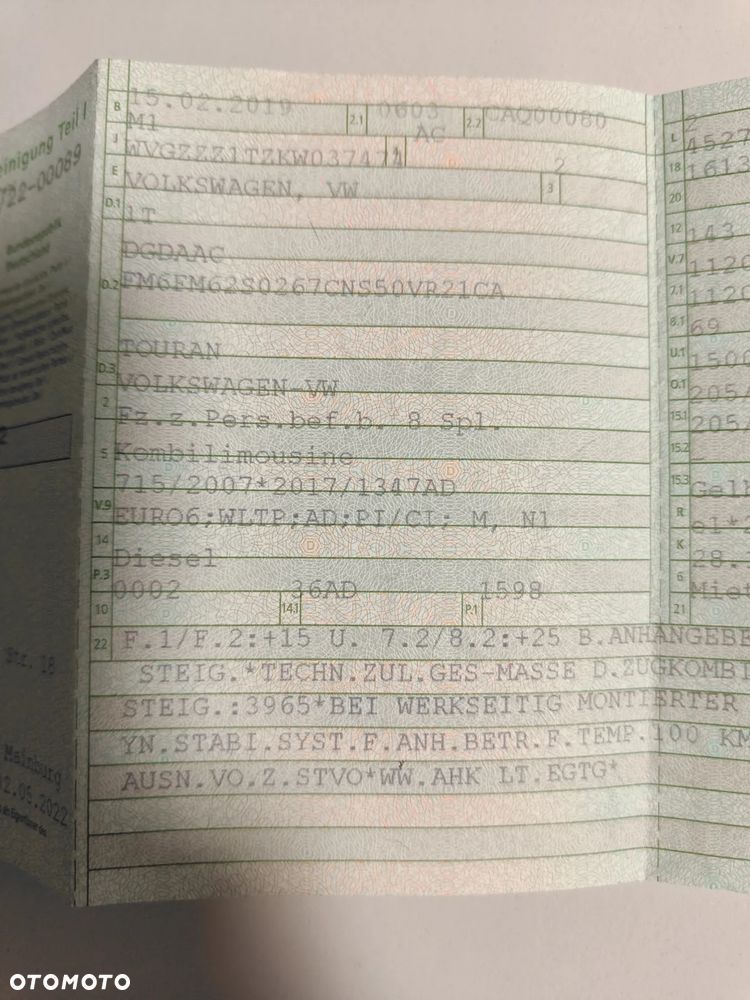 B 15.02.2019 2.1 0603 2.2 CAQ00080
J M1 AC
E WVGZZZ1TZKW037474 3 2
D.1 VOLKSWAGEN, VW
1T
D.2 DGDAAC
FM6FM62S0267CNS50VR21CA
D.3 TOURAN
2 VOLKSWAGEN-VW
5 Fz.z.Pers.bef.b. 8 Spl.
Kombilimousine
V.9 715/2007*2017/1347AD
14 EURO6;WLTP;AD;PI/CI; M, N1
P.3 Diesel
10 0002 14.1 36AD P.1 1598
22 F.1/F.2:+15 U. 7.2/8.2:+25 B.ANHÄNGEBE
STEIG.*TECHN.ZUL.GES-MASSE D.ZUGKOMBI
STEIG.:3965*BEI WERKSEITIG MONTIERTER
YN.STABI.SYST.F.ANH.BETR.F.TEMP.100 KM
AUSN.VO.Z.STVO*WW.AHK LT.EGTG*
L
18 4527
20 1613
12
V.7 143
7.1 1120
8.1 1120
U.1 69
O.1 1500
15.1 205/
15.2 205/
15.3
R Gelb
K e1*2
6 28.
21 Miet
einigung Teil I
722-00089
Bundesrepublik
Deutschland
Str. 18
Mainburg
02.05.2022
OTOMOTO